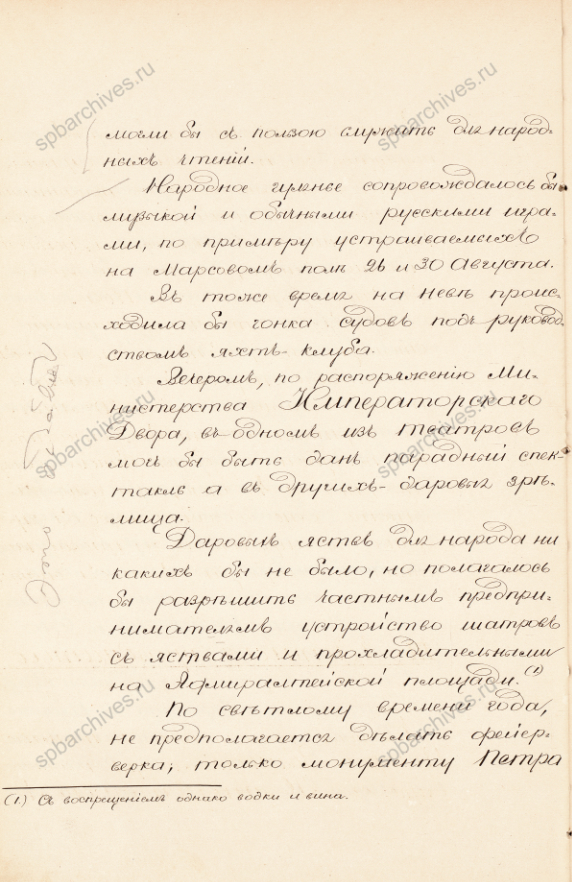 могли бы съ пользою служить для народ-
ныхъ чтеній.
Народное гулянье сопровождалось бы
музыкой и обычными русскими игра-
ми, по примѣру устраиваемыхъ
на Марсовомъ полѣ 26 и 30 Августа.
Въ тоже время на Невѣ проис-
ходила бы гонка судовъ подъ руковод-
ствомъ яхтъ-клуба.
Вечеромъ, по распоряженію Ми-
нистерства Императорскаго
Двора, въ одномъ изъ театровъ
могъ бы быть данъ парадный спек-
такль а въ другихъ- даровыя зрѣ-
лища.
Даровыхъ яствъ для народа ни
какихъ бы не было, но полагалось
бы разрѣшить частнымъ предпри-
нимателямъ устройство шатровъ
съ яствами и прохладительными
на Адмиралтейской площади. (1)
По свѣтлому времени года,
не предполагается дѣлать фейер-
верка; только монументу Петра
(1.) Съ воспрещеніемъ однако водки и вина.
Это
spbarchives.ru
spbarchives.ru
spbarchives.ru
spbarchives.ru
spbarchives.ru
spbarchives.ru